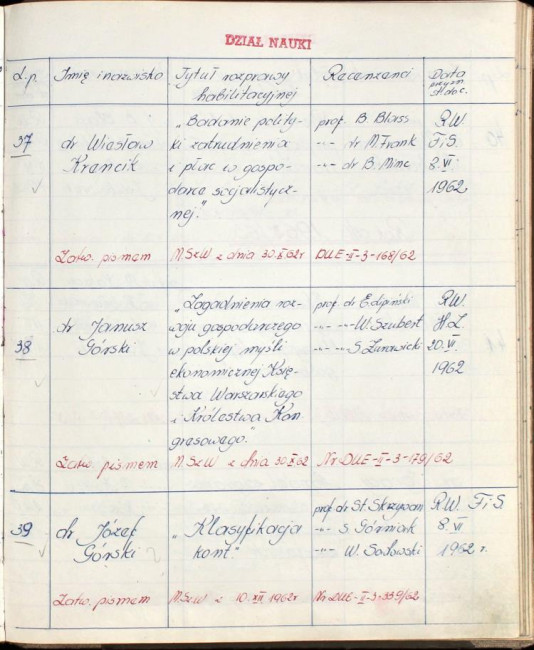 DZIAŁ NAUKI
L.p. Imię i nazwisko Tytuł rozprawy habilitacyjnej Recenzenci Data przyzn. st. doc.
37 dr Wiesław Krencik
„Badanie polity-
ki zatrudnienia
i płac w gospo-
darce socjalistycz-
nej."
prof. B. Blass
-"- dr M. Frank
-"- dr B. Minc
R.W.
F.i S.
8.VI.
1962
Zatw. pismem M.Sz.W z dnia 30.X.62r. DUE-II-3-168/62
38 dr Janusz Górski
„Zagadnienia roz-
woju gospodarczego
w polskiej myśli
ekonomicznej Księ-
stwa Warszawskiego
i Królestwa Kon-
gresowego."
prof. dr E. Lipiński
-"- -"- W. Szubert
-"- -"- S. Żurawicki
R.W.
H.Z.
20.VI.
1962
Zatw. pismem M.Sz.W z dnia 30.X.62 Nr DUE-II-3-179/62
39 dr Józef Górski
„Klasyfikacja
kont."
prof. dr St. Skrzywan
-"- S. Górniak
-"- W. Sadowski
R.W. F.i S.
8.VI
1962 r.
Zatw. pismem M.Sz.W z 10.XII 1962r Nr DUE-II-3-339/62